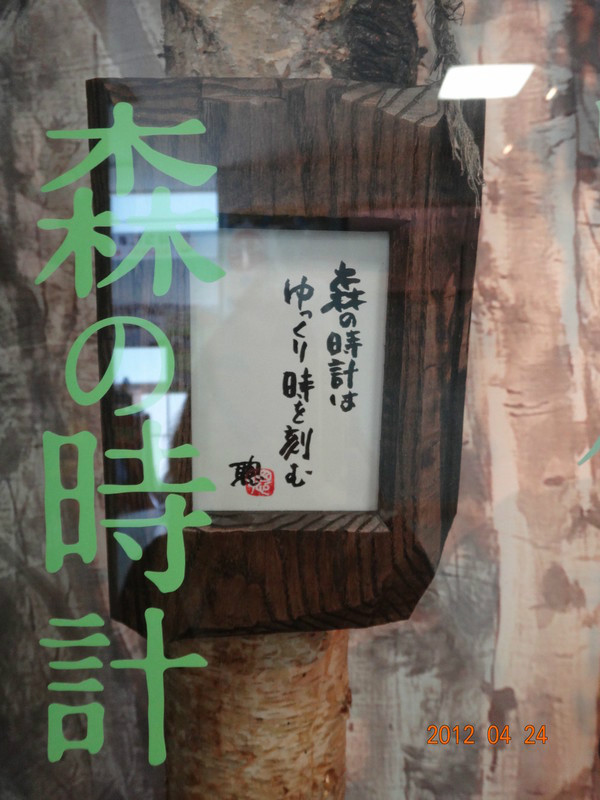 森の時計
森の時計は
ゆっくり時を刻む
聰
2012 04 24